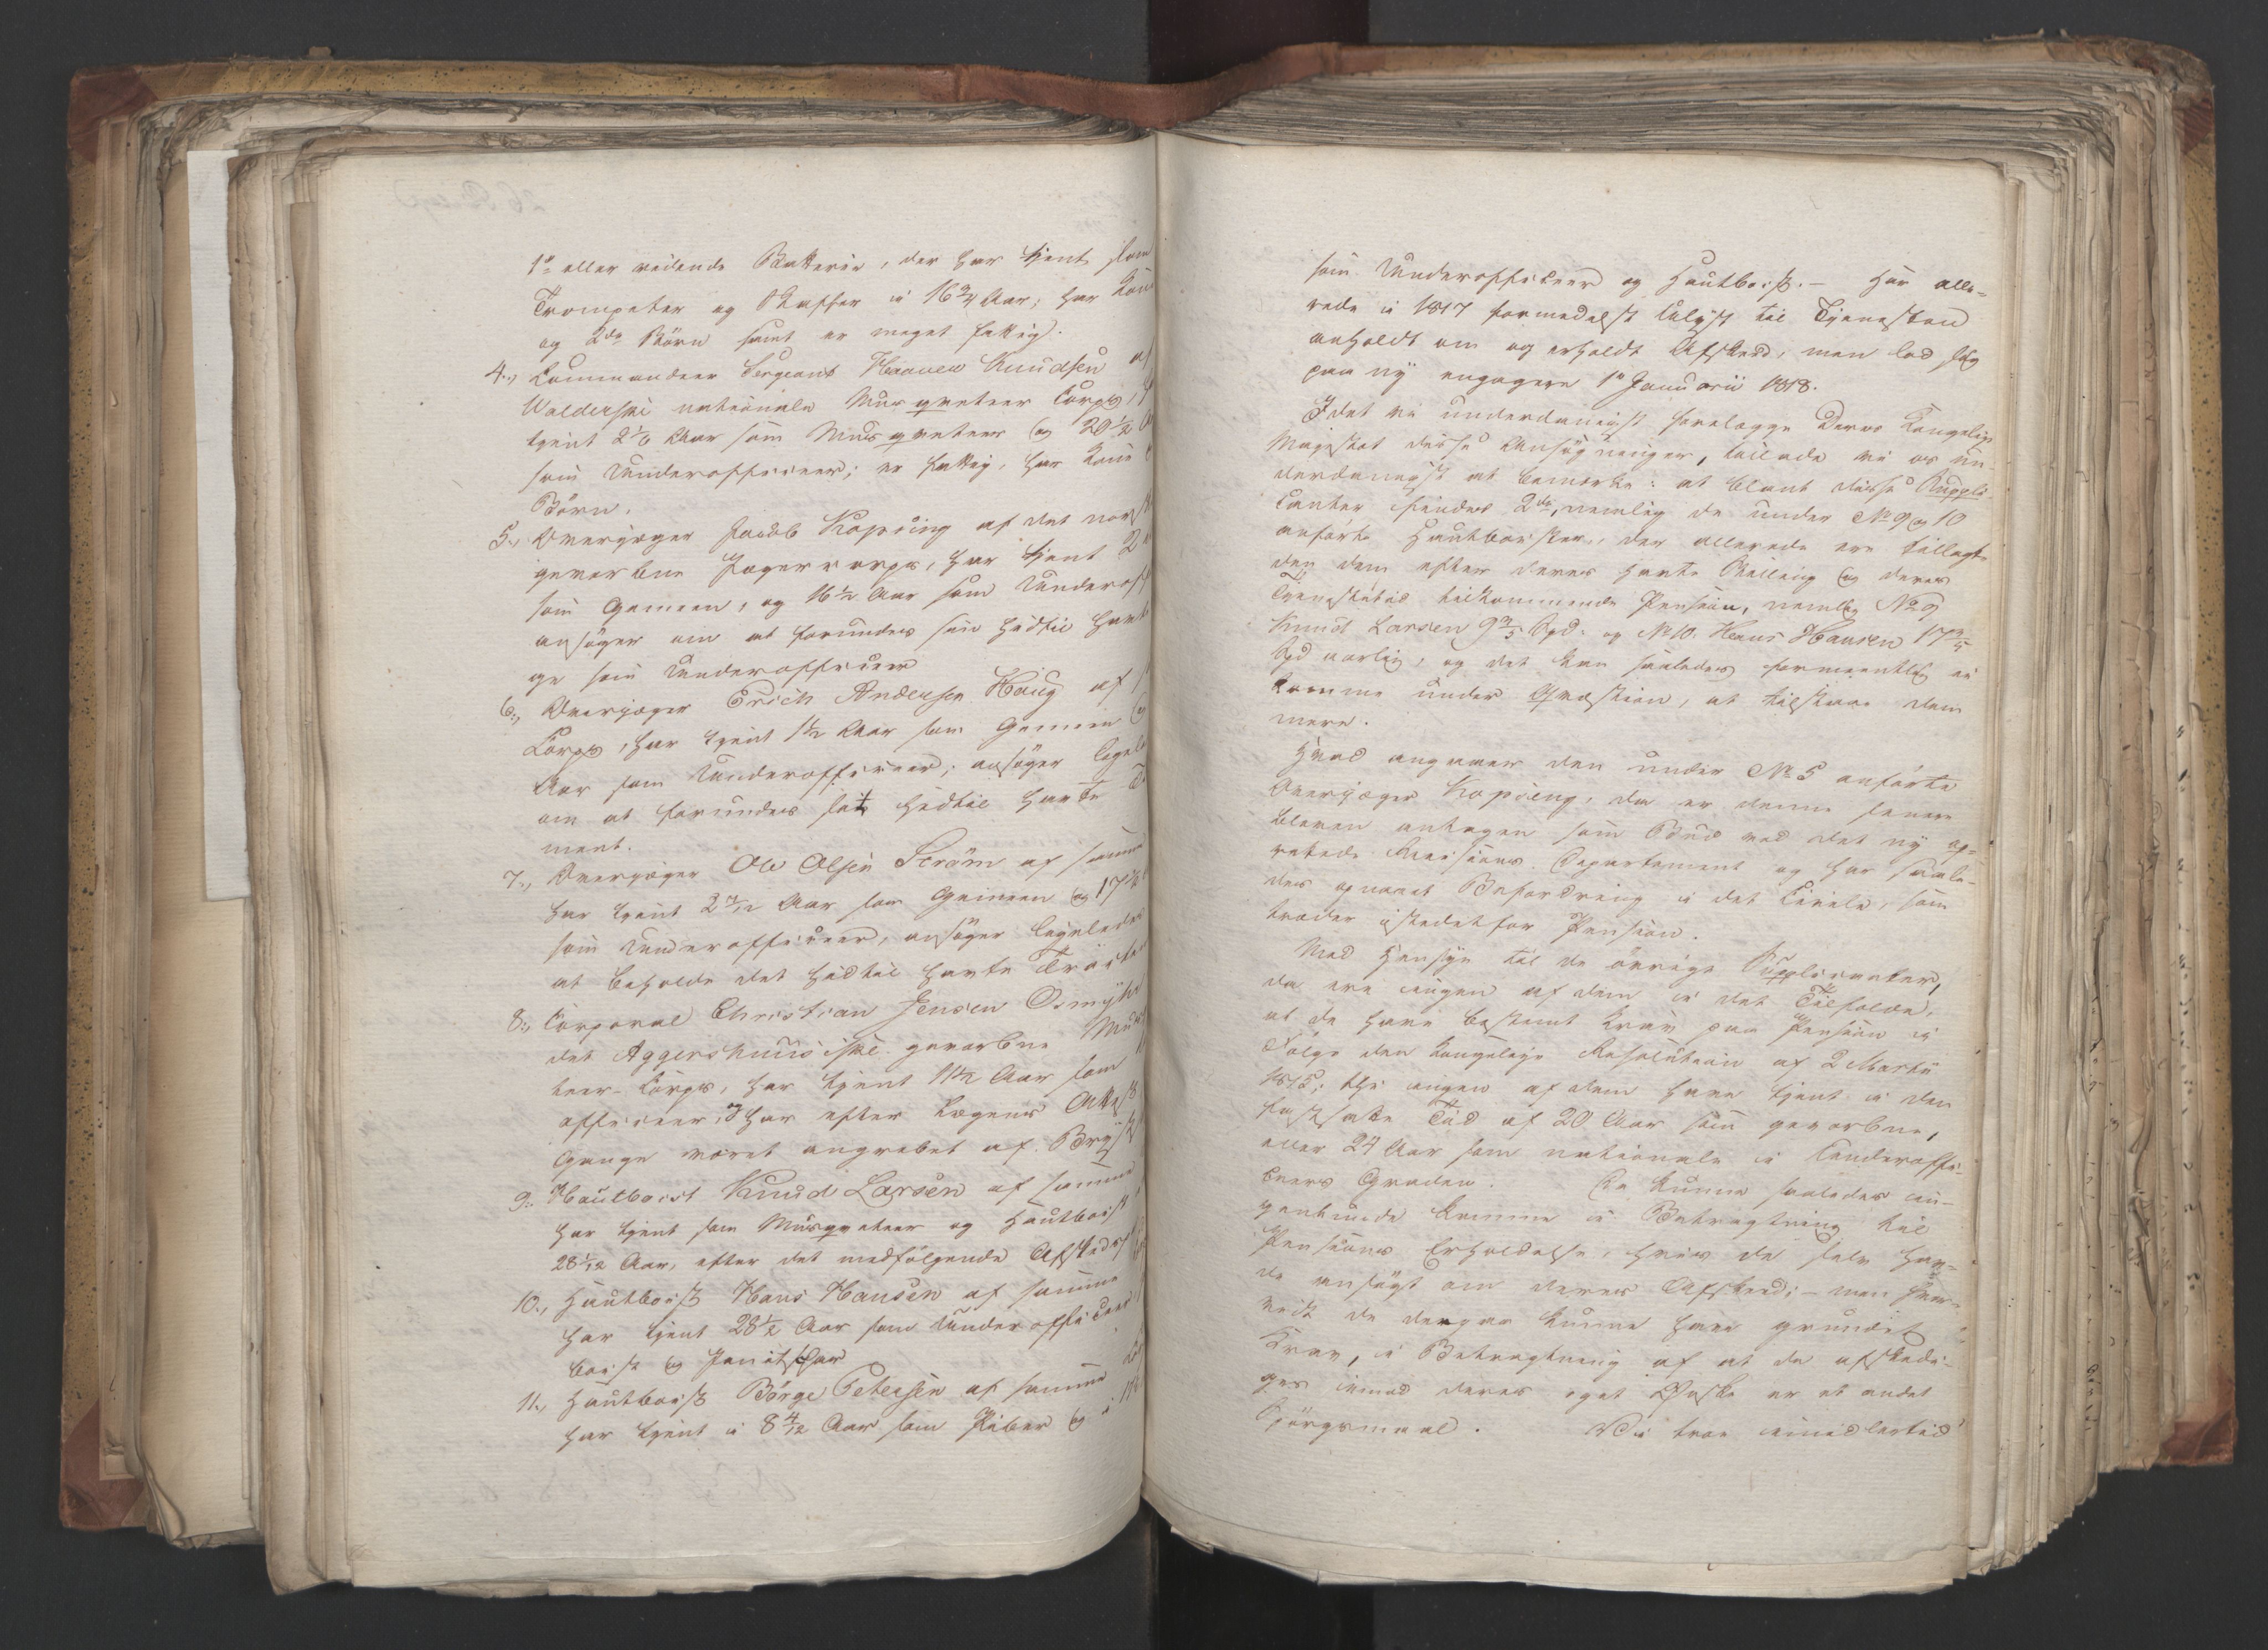 1ste eller ridende Batterie, der har tjent som
Trompeter og Staffer i 16 3/4 Aar; har Kone
og 2de Børn samt er meget fattig.
4., Commandeer Sergeant Haavew Knudsen af
Walderske nationale Musqveteer Corps,
tjent 2 1/6 Aar som Musqveteer og 20 1/2
som Underofficeer; er fattig, har Kone
Børn.
5., Overjæger Jacob Kopsing af det norske
gevorbne Jægercorps, har tjent 2
som Gemeen, og 16 1/2 Aar som Underoff
ansøger om at forundes sin hidtil havte
ge som Underofficeer
6., Overjæger Erich Andersen Haug af
Corps, har tjent 1 1/2 Aar som Gemeen og
Aar som Underofficeer; ansøger ligele
om at forundes sit hidtil havte
ment.
7., Overjæger Ole Olsen Strøm af samme
har tjent 2 7/12 Aar som Gemeen og 17
som Underofficeer, ansøger ligeledes
at beholde det hidtil havte
8., Corporal Christian Jensen Osmyhr
det Aggershuusiske gevorbne Mus
teer-Corps, har tjent 11 1/2 Aar som
officeer, og har efter Lægens Attest
Gange været angrebet af Bryst
9., Hautboist Knud Larsen af samme
har tjent som Musqveteer og Hautboist
28 1/12 Aar, efter det medfølgende Afskeds
10., Hautboist Hans Hansen af samme
har tjent 28 1/2 Aar som Underofficeer,
boist og Janitschar
11., Hautboist Börge Petersen af samme
har tjent i 8 4/12 Aar som Piber og i 11
som Underofficeer og Hautboist. – Har alle-
rede i 1817 formedelst Ulyst til Tjenesten
anholdt om og erholdt Afskeed, men lod sig
paa ny engagere 1ste Januarii 1818.
Idet vi underdanigst forelægge Deres Kongelige
Majestæt disse Ansøgninger, tillade vi os un-
derdanigst at bemærke: at blant disse Suppli-
canter findes 2de, nemlig de under No 9 og 10
anførte Hautboister, der allerede ere tillagte
den dem efter deres havte Stilling og deres
Tjenestetid tilkommende Pension, nemlig No 9
Knud Larsen 9 3/5 Spd. og No 10. Hans Hansen 17 3/5
Spd aarlig, og det kan saaledes formeentlig ei
komme under Qvæstion, at tilstaae dem
mere.
Hvad angaaer den under No 5 anførte
Overjæger Kopsing, da er denne senere
bleven antagen som Bud ved det ny op-
rettede Revisions Departement og har saale-
des opnaaet Befordring i det Civile, som
træder istedetfor Pension.
Med Hensyn til de øvrige Supplicanter,
da ere ingen af dem i det Tilfælde,
at de have bestemt Krav paa Pension i
Følge den Kongelige Resolution af 2 Martii
1815; thi ingen af dem have tjent i den
fastsatte Tid af 20 Aar som gevorbne,
eller 24 Aar som nationale i Underoffi-
ceers Graden. De kunne saaledes in-
genlunde komme i Betragtning til
Pensions Erholdelse, hvis de selv hav-
de ansøgt om deres Afskeed; – men hvor-
vidt de derpaa kunne have grundet
Krav, i Betragtning af at de afskedi-
ges imod deres eget Ønske er et andet
Spørgsmaal. Vi troe imidlertid